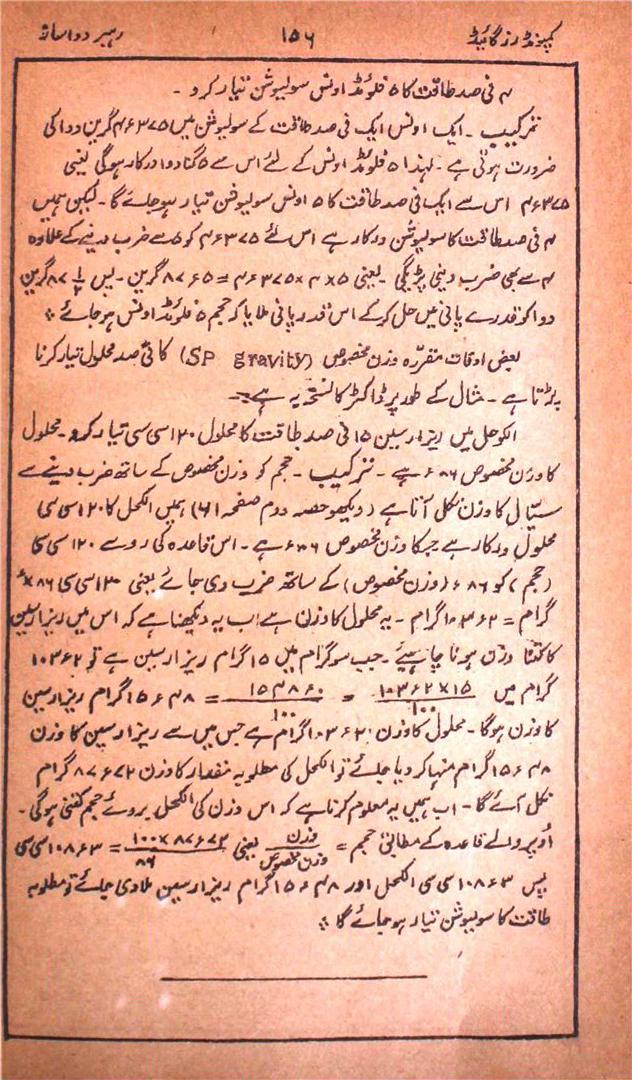 کمپونڈرز گائیڈ ۱۵۶ رہبر دواسازی
۴ فی صد طاقت کا ۵ فلوئڈ اونس سولیوشن تیار کرو ۔
ترکیب ۔ ایک اونس ایک فی صد طاقت کے سولیوشن میں ۴ء۳۷۵ گرین دوا کی
ضرورت ہوتی ہے ۔ لہٰذا ۵ فلوئڈ اونس کے لئے اس سے ۵ گنا دوا درکار ہوگی یعنی
۴ء۳۷۵ اس سے ایک فی صد طاقت کا ۵ اونس سولیوشن تیار ہو جائے گا ۔ لیکن ہمیں
۴ فی صد طاقت کا سولیوشن درکار ہے اس لئے ۴ء۳۷۵ کو ۵ سے ضرب دینے کے علاوہ
۴ سے بھی ضرب دینی پڑیگی ۔ یعنی ۵ × ۴ × ۴ء۳۷۵ = ۸۷ء۵ گرین ۔ پس ۸۷ ۱/۲ گرین
دوا کو قدرے پانی میں حل کر کے اس قدر پانی ملایا کہ حجم ۵ فلوئڈ اونس ہو جائے ؞
بعض اوقات مقررہ وزن مخصوص (SP gravity) کا فی صد محلول تیار کرنا
پڑتا ہے ۔ مثال کے طور پر ڈاکٹر کا نسخہ یہ ہے :۔
الکوحل میں ریزارسین ۱۵ فی صد طاقت کا محلول ۱۲۰ سی سی تیار کرو ۔ محلول
کا وزن مخصوص ۸۶ء ہے ۔ ترکیب ۔ حجم کو وزن مخصوص کے ساتھ ضرب دینے سے
سیّال کا وزن نکل آتا ہے (دیکھو حصہ دوم صفحہ ۶۱) ہمیں الکحل کا ۱۲۰ سی سی
محلول درکار ہے جسکا وزن مخصوص ۸۶ء ہے ۔ اس قاعدہ کی رو سے ۱۲۰ سی سی
(حجم) کو ۸۶ء (وزن مخصوص) کے ساتھ ضرب دی جائے یعنی ۱۲۰ سی سی × ۸۶ء
گرام = ۱۰۳ء۲ گرام ۔ یہ محلول کا وزن ہے اب یہ دیکھنا ہے کہ اس میں ریزارسین
کا کتنا وزن ہونا چاہیئے ۔ جب سو گرام میں ۱۵ گرام ریزارسین ہے تو ۱۰۳ء۲
گرام میں ۱۰۳ء۲×۱۵/۱۰۰ = ۱۵۴۸ء۰/۱۰۰ = ۱۵ء۴۸ گرام ریزارسین
کا وزن ہوگا ۔ محلول کا وزن ۱۰۳ء۲ گرام ہے جس میں سے ریزارسین کا وزن
۱۵ء۴۸ گرام منہا کر دیا جائے تو الکحل کی مطلوبہ مقدار کا وزن ۸۷ء۷۲ گرام
نکل آئے گا ۔ اب ہمیں یہ معلوم کرنا ہے کہ اس وزن کی الکحل بروئے حجم کتنی ہوگی ۔
اوپر والے قاعدہ کے مطابق حجم = وزن/وزن مخصوص یعنی ۱۰۰×۸۷ء۷۲/۸۶ =
پس الکحل اور ۱۵ء۴۸ گرام ریزارسین ملا دی جائے تو مطلوبہ
طاقت کا سولیوشن تیار ہو جائے گا ؞